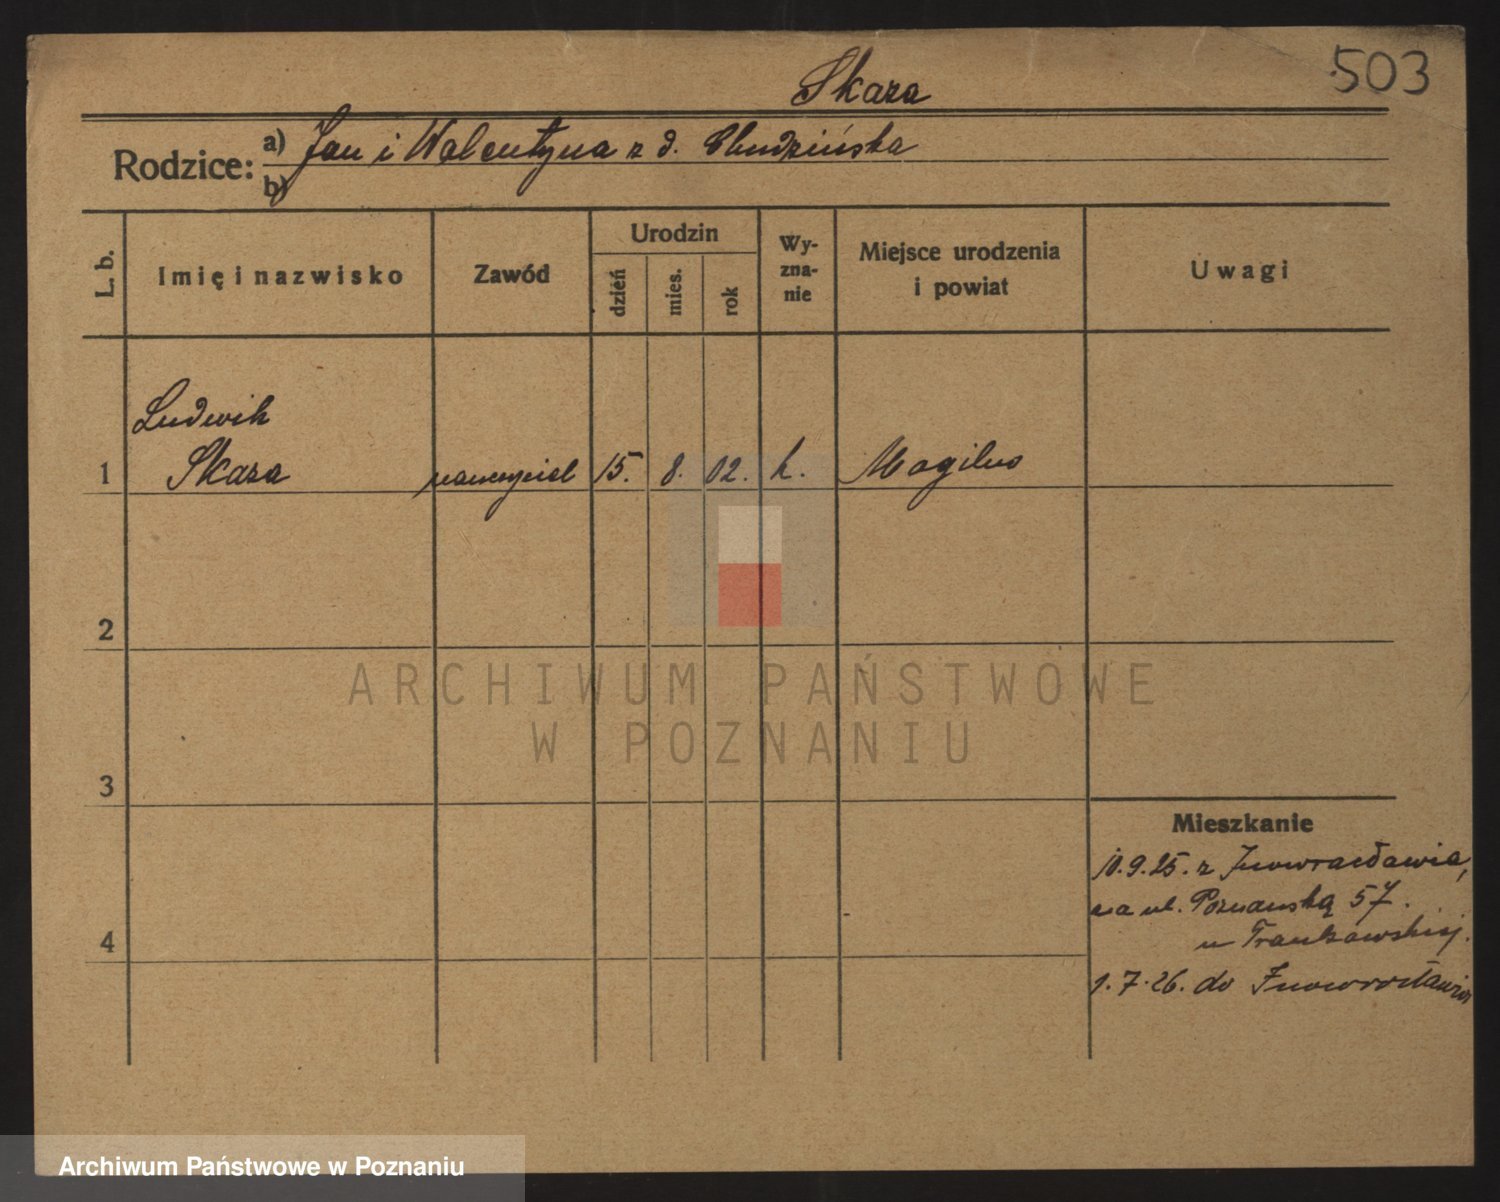 503
Skaza
Rodzice: a) Jan i Walentyna z d. Chudzińska
b)
L. b.
Imię i nazwisko
Zawód
Urodzin
dzień
mies.
rok
Wy-
zna-
nie
Miejsce urodzenia
i powiat
Uwagi
Ludwik
1 Skaza nauczyciel 15. 8. 02. k. Mogilno
2
3
4
Mieszkanie
10.9.25. z Inowrocławia,
na ul. Poznańską 57.
u Frankowskiej.
1.7.26. do Inowrocławia
ARCHIWUM PAŃSTWOWE
W POZNANIU
Archiwum Państwowe w Poznaniu